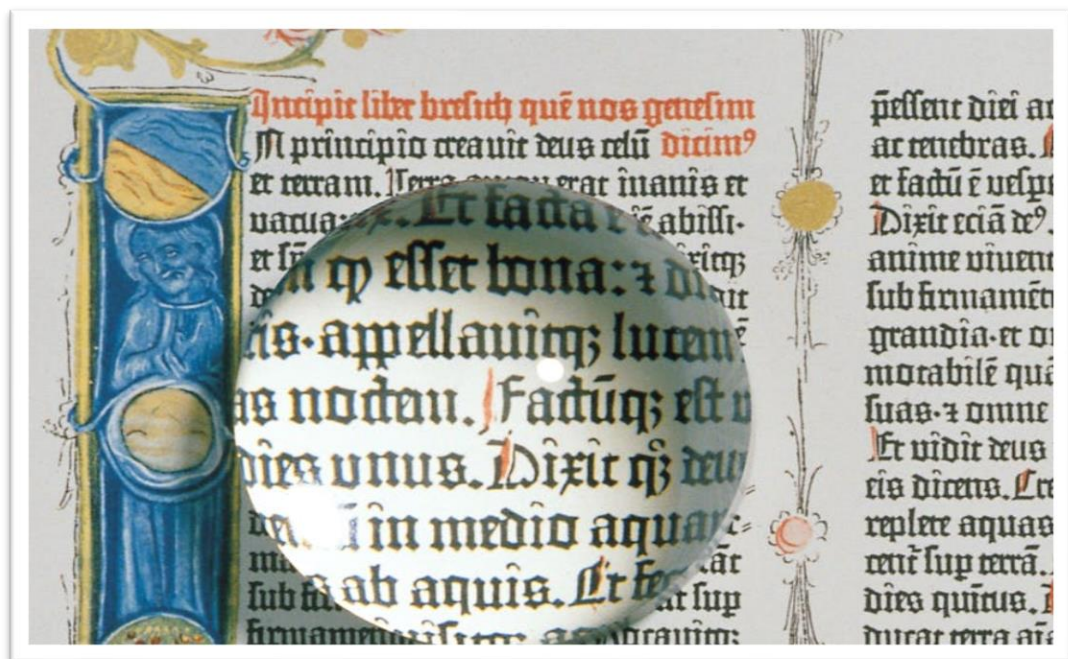 Incipit liber bresith quē nos genesim
N principio creauit deus celū dicimꝰ
et terram. Terra erat inanis et
vacua: abissi·
et
Et facta ē
qꝫ esset bona: ⁊
is·appellauitqꝫ lucem
as noctem. Factūqꝫ est
dies vnus. Dixit qꝫ deus
in medio aquar
ab aquis. Et fec
sub sup
p̄essent diei ac
ac tenebras.
et factū ē vespe
Dixit eciā deꝰ.
anime viuent
sub firmamēt
grandia·et o
motabilē quā
suas·⁊ omne
Et vidit deus
eis dicens. Cre
replete aquas
cent̄ sup terrā.
dies quītus.
ducat terra aīa